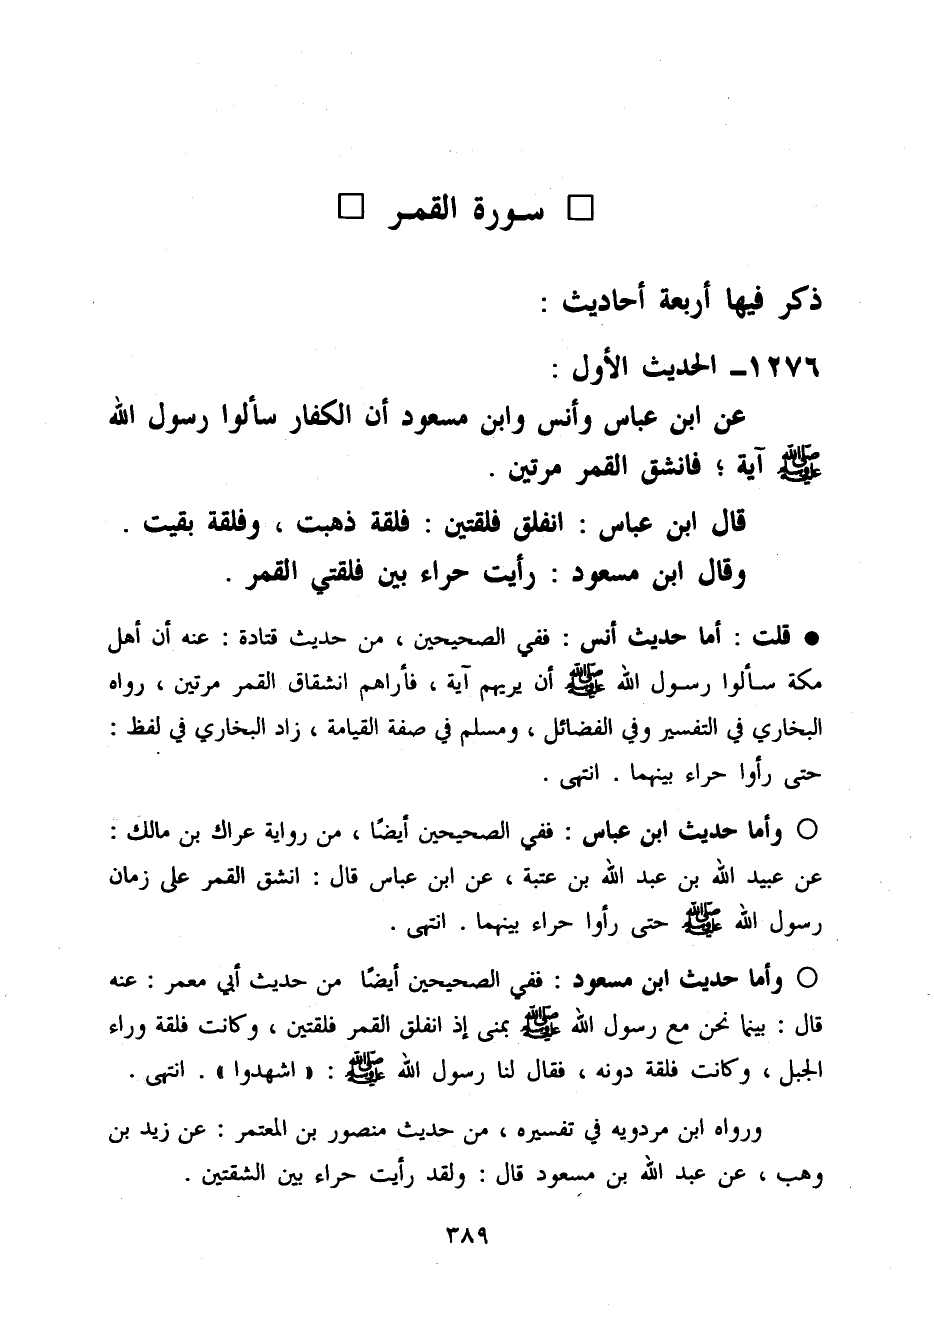 □ سورة القمر □
ذكر فيها أربعة أحاديث :
١٢٧٦ـ الحديث الأول :
عن ابن عباس وأنس وابن مسعود أن الكفار سألوا رسول الله
ﷺ آية ؛ فانشق القمر مرتين .
قال ابن عباس : انفلق فلقتين : فلقة ذهبت ، وفلقة بقيت .
وقال ابن مسعود : رأيت حراء بين فلقتي القمر .
● قلت : أما حديث أنس : ففي الصحيحين ، من حديث قتادة : عنه أن أهل
مكة سألوا رسول الله ﷺ أن يريهم آية ، فأراهم انشقاق القمر مرتين ، رواه
البخاري في التفسير وفي الفضائل ، ومسلم في صفة القيامة ، زاد البخاري في لفظ :
حتى رأوا حراء بينهما . انتهى .
○ وأما حديث ابن عباس : ففي الصحيحين أيضًا ، من رواية عراك بن مالك :
عن عبيد الله بن عبد الله بن عتبة ، عن ابن عباس قال : انشق القمر على زمان
رسول الله ﷺ حتى رأوا حراء بينهما . انتهى .
○ وأما حديث ابن مسعود : ففي الصحيحين أيضًا من حديث أبي معمر : عنه
قال : بينما نحن مع رسول الله ﷺ بمنى إذ انفلق القمر فلقتين ، وكانت فلقة وراء
الجبل ، وكانت فلقة دونه ، فقال لنا رسول الله ﷺ : « اشهدوا » . انتهى .
ورواه ابن مردويه في تفسيره ، من حديث منصور بن المعتمر : عن زيد بن
وهب ، عن عبد الله بن مسعود قال : ولقد رأيت حراء بين الشقتين .
٣٨٩